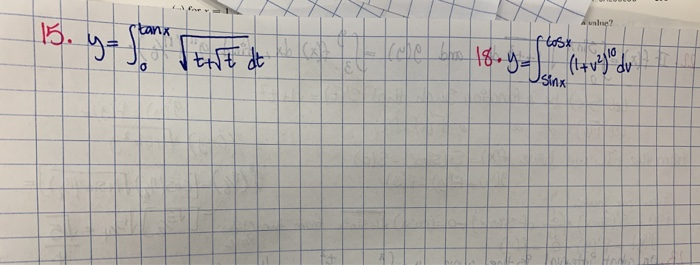 15. y = ∫₀^{tan x} √(t+√t) dt
18. y = ∫_{sin x}^{cos x} (1+v²)^{10} dv